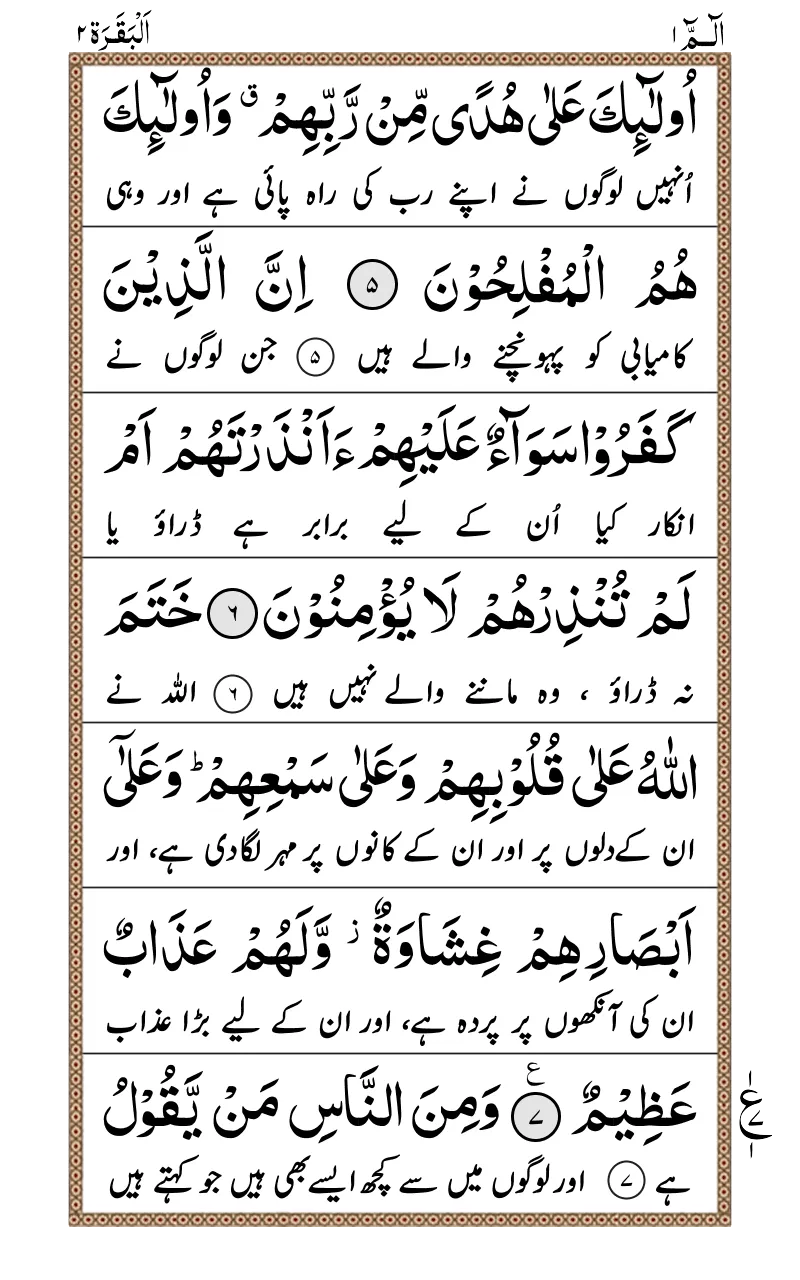 الٓـمّٓ ۱
اَلْبَقَرَة ۲
اُولٰٓئِكَ عَلٰى هُدًى مِّنْ رَّبِّهِمْ ۗ وَاُولٰٓئِكَ
اُنہیں لوگوں نے اپنے رب کی راہ پائی ہے اور وہی
هُمُ الْمُفْلِحُوْنَ ۵ اِنَّ الَّذِيْنَ
کامیابی کو پہونچنے والے ہیں ۵ جن لوگوں نے
كَفَرُوْا سَوَآءٌ عَلَيْهِمْ ءَاَنْذَرْتَهُمْ اَمْ
انکار کیا اُن کے لیے برابر ہے ڈراؤ یا
لَمْ تُنْذِرْهُمْ لَا يُؤْمِنُوْنَ ۶ خَتَمَ
نہ ڈراؤ ، وہ ماننے والے نہیں ہیں ۶ اللہ نے
اللّٰهُ عَلٰى قُلُوْبِهِمْ وَعَلٰى سَمْعِهِمْ ؕ وَعَلٰٓى
ان کے دلوں پر اور ان کے کانوں پر مہر لگادی ہے، اور
اَبْصَارِهِمْ غِشَاوَةٌ ز وَّلَهُمْ عَذَابٌ
ان کی آنکھوں پر پردہ ہے، اور ان کے لیے بڑا عذاب
عَظِيْمٌ ۷ ع وَمِنَ النَّاسِ مَنْ يَّقُوْلُ
ہے ۷ اور لوگوں میں سے کچھ ایسے بھی ہیں جو کہتے ہیں
۱
ع ۷
۱